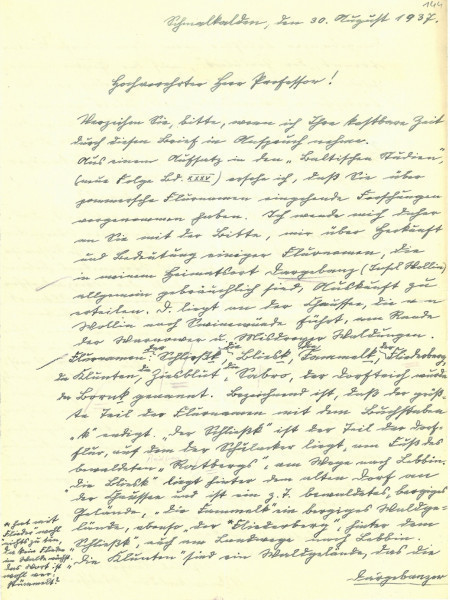 144
Schmalkalden, den 30. August 1937.
Hochverehrter Herr Professor!
Verzeihen Sie, bitte, wenn ich Ihre kostbare Zeit
durch diesen Brief in Anspruch nehme.
Aus einem Aufsatz in den „Baltischen Studien"
(neue Folge Bd. XXXV) ersehe ich, daß Sie über
pommersche Flurnamen eingehende Forschungen
vorgenommen haben. Ich wende mich daher
an Sie mit der Bitte, mir über Herkunft
und Bedeutung einiger Flurnamen, die
in meinem Heimatsort Dargebanz (Insel Wollin)
allgemein gebräuchlich sind, Auskunft zu
erteilen. D. liegt an der Chaussee, die von
Wollin nach Swinemünde führt, am Rande
der Warnower u. Misdroyer Waldungen.
Flurnamen: der Schließk, die Bliesk, die Dammelk, der Fliederberg,
die Klünten, die Ziesblut, die Sabro, der Dorfteich wurde
der Bornk genannt. Bezeichnend ist, daß der größ-
te Teil der Flurnamen mit dem Buchstaben
„k" endigt. „Der Schließk" ist der Teil der Dorf-
flur, auf dem der Schulacker liegt, am Fuß des
bewaldeten „Rothbergs", am Wege nach Lebbin.
„Die Bliesk" liegt hinter dem alten Dorf an
der Chaussee und ist ein z. T. bewaldetes, bergiges
Gelände, „die Dammelk" ein bergiges Waldge-
lände, ebenso „der Fliederberg" hinter dem
Schließk, auch am Landwege nach Lebbin.
„Die Klünten" sind ein Waldgelände, das die
Dargebanzer
hat mit
Flieder wohl
nichts zu tun,
da kein Flieder
im Walde wächst.
Das Wort ist
wohl ver-
stümmelt?